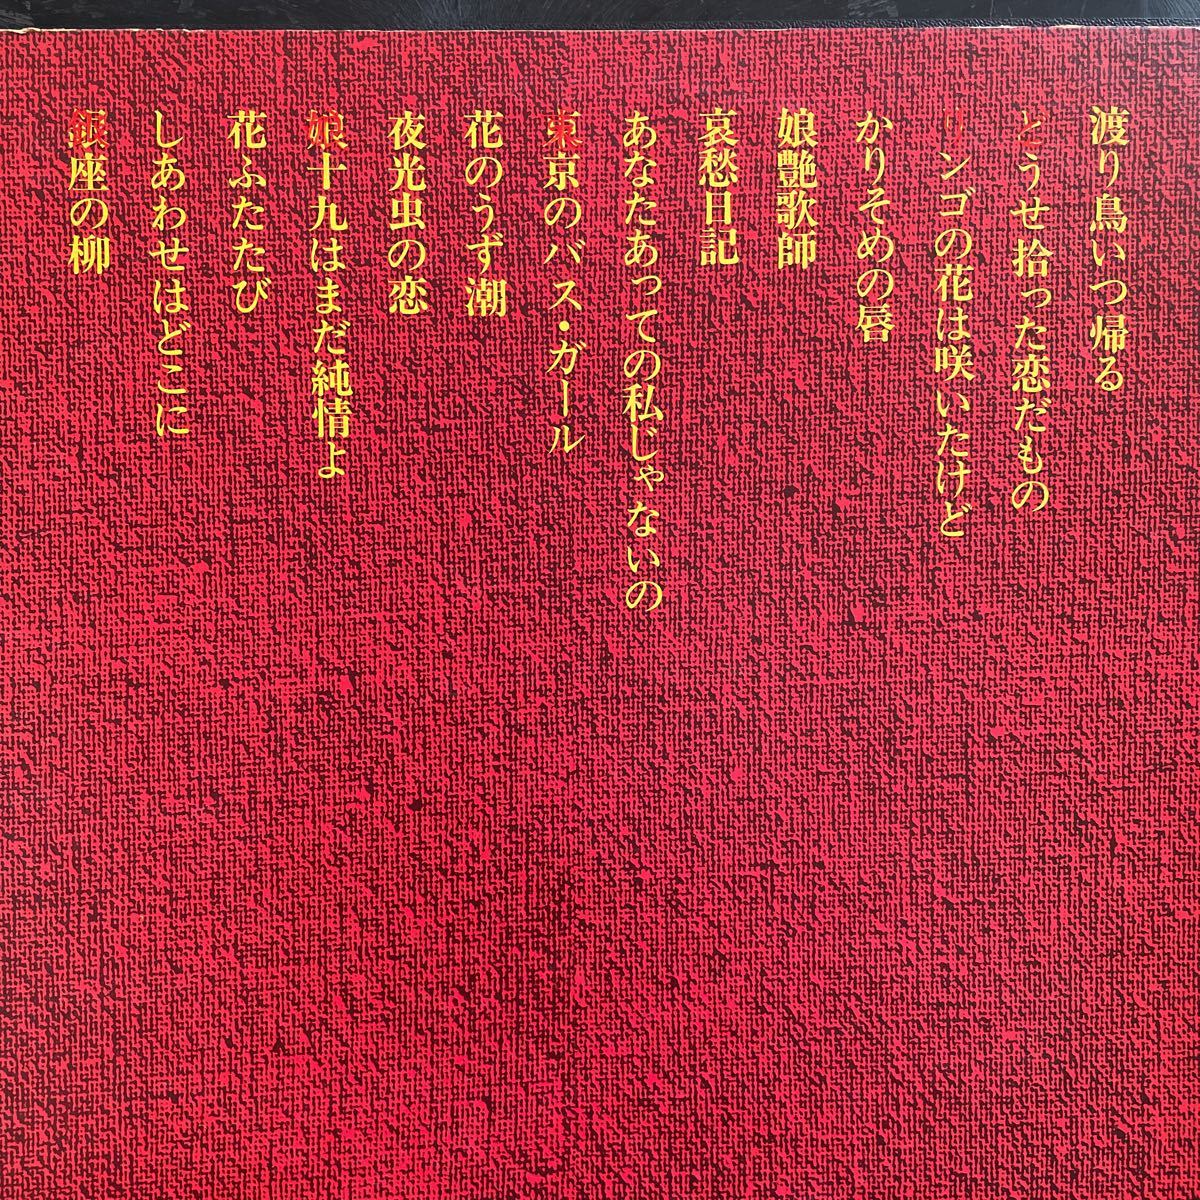 渡り鳥いつ帰る
どうせ拾った恋だもの
リンゴの花は咲いたけど
かりそめの唇
娘艶歌師
哀愁日記
あなたあっての私じゃないの
東京のバス・ガール
花のうず潮
夜光虫の恋
娘十九はまだ純情よ
花ふたたび
しあわせはどこに
銀座の柳